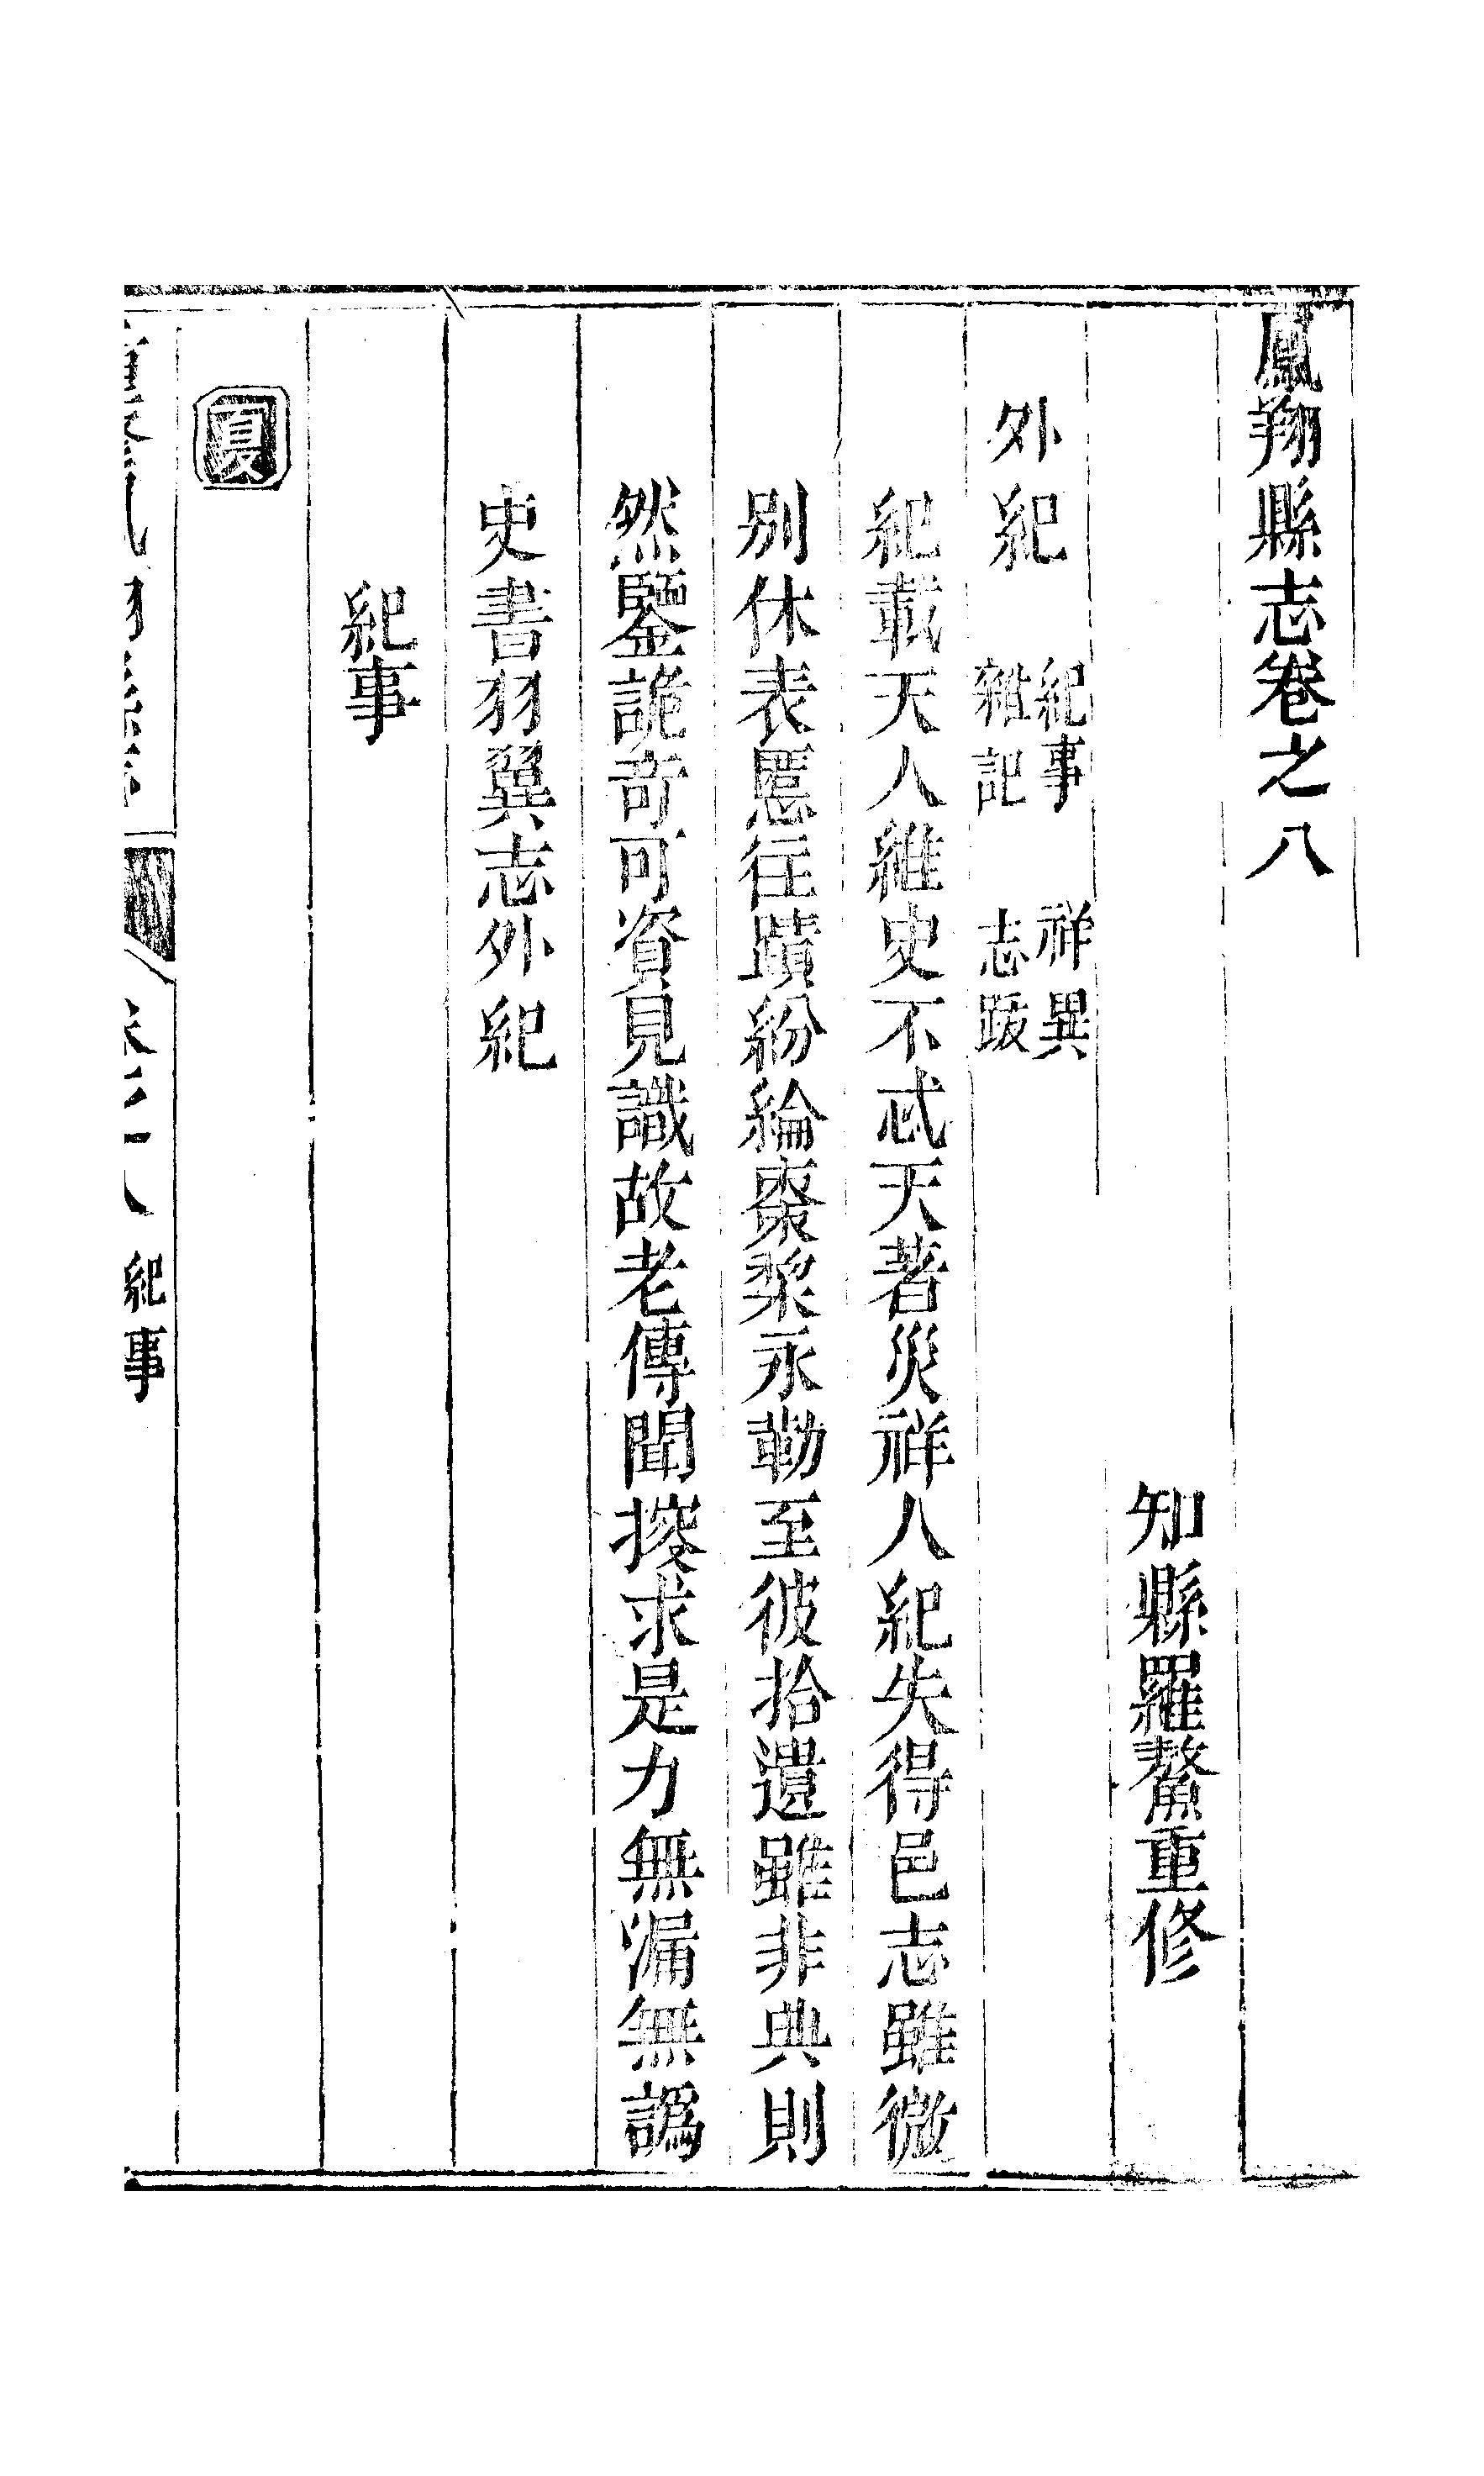 鳳翔縣志卷之八
知縣羅鰲重修
外紀
紀事 祥異
雜記 志跋
紀載天人維史不忒天著災祥人紀失得邑志雖微
別休表慝往蹟紛綸棗棃永勒至彼拾遺雖非典則
然鑒詭奇可資見識故老傳聞搜求是力無漏無譌
史書羽翼志外紀
紀事
夏
紀事